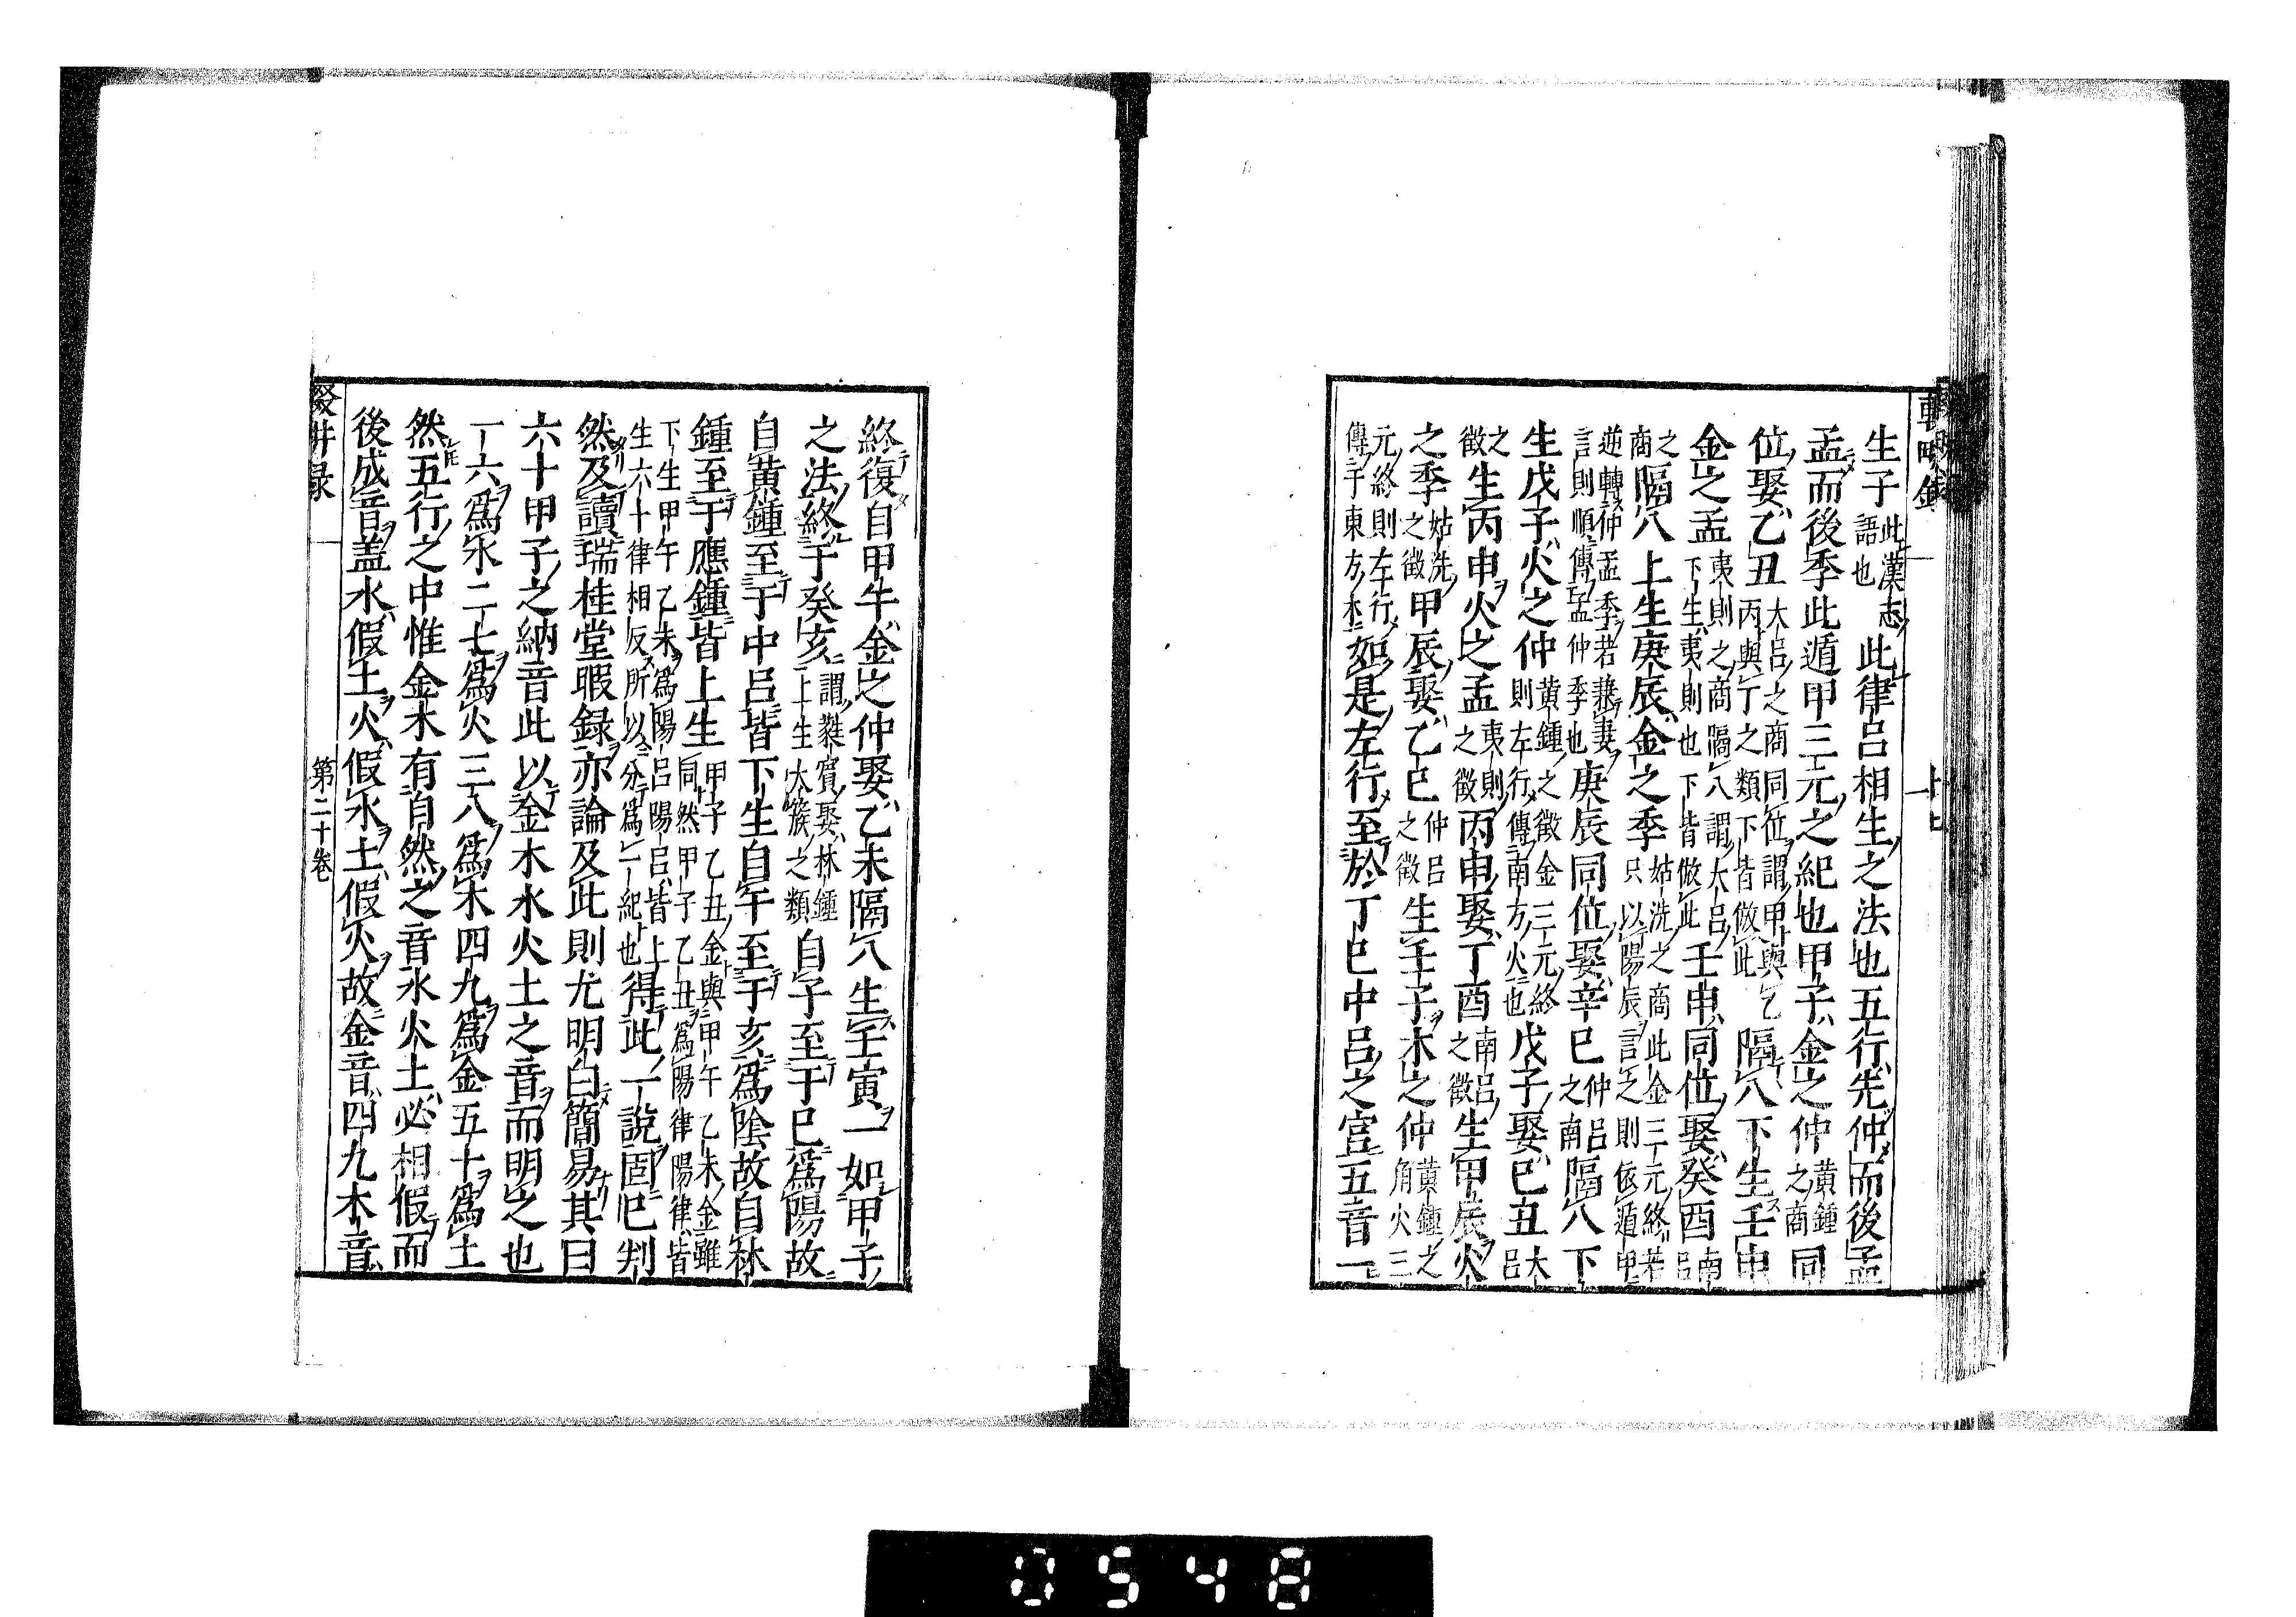 生子此漢志語也此律呂相生之法也五行先仲而後孟
孟而後季此遁甲三元之紀也甲子金之仲黄鍾之商同
位娶乙丑大呂之商同位謂甲與乙丙與丁之類下皆倣此隔八下生壬申
金之孟夷則之商隔八謂大呂下生夷則也下皆倣此壬申同位娶癸酉南呂
之商隔八上生庚辰金之季姑洗之商此金三元終若只以陽辰言之則依遁甲
逆轉仲孟季若兼妻言則順傳孟仲季也庚辰同位娶辛巳仲呂之商隔八下
生戊子火之仲黄鍾之徵金三元終則左行傳南方火也戊子娶巳丑大呂
之徵生丙申火之孟夷則之徵丙申娶丁酉南呂之徵生甲辰火
之季姑洗之徵甲辰娶乙巳仲呂之徵生壬子木之仲黄鍾之角火三
元終則左行傳于東方木如是左行至於丁巳中呂之宮五音一
終復自甲午金之仲娶乙未隔八生壬寅一如甲子
之法終于癸亥謂蕤賓娶林鍾上生太簇之類自子至于巳爲陽故
自黄鍾至于中呂皆下生自午至于亥爲陰故自林
鍾至于應鍾皆上生甲子乙丑金與甲午乙未金雖同然甲子乙丑爲陽律陽律皆
下生甲午乙未爲陽呂陽呂皆上生六十律相反所以分爲一紀也得此一說固巳判
然及讀瑞桂堂暇録亦論及此則尤明白簡易其曰
六十甲子之納音此以金木水火土之音而明之也
一六爲水二七爲火三八爲木四九爲金五十爲土
然五行之中惟金木有自然之音水火土必相假而
後成音盖水假土火假水土假火故金音四九木音
輟畊録 第二十卷